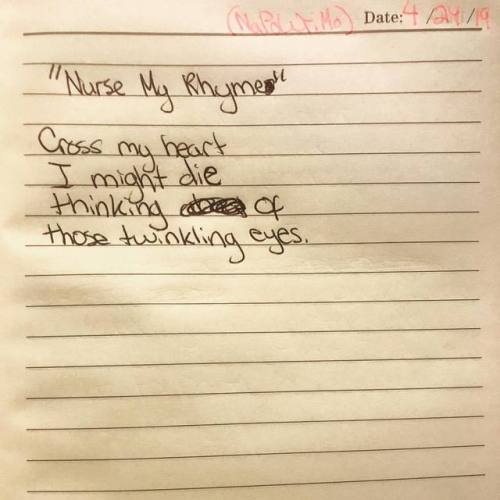 (NaPoWriMo) Date: 4/24/19
"Nurse My Rhymes"
Cross my heart
I might die
thinking of
those twinkling eyes.